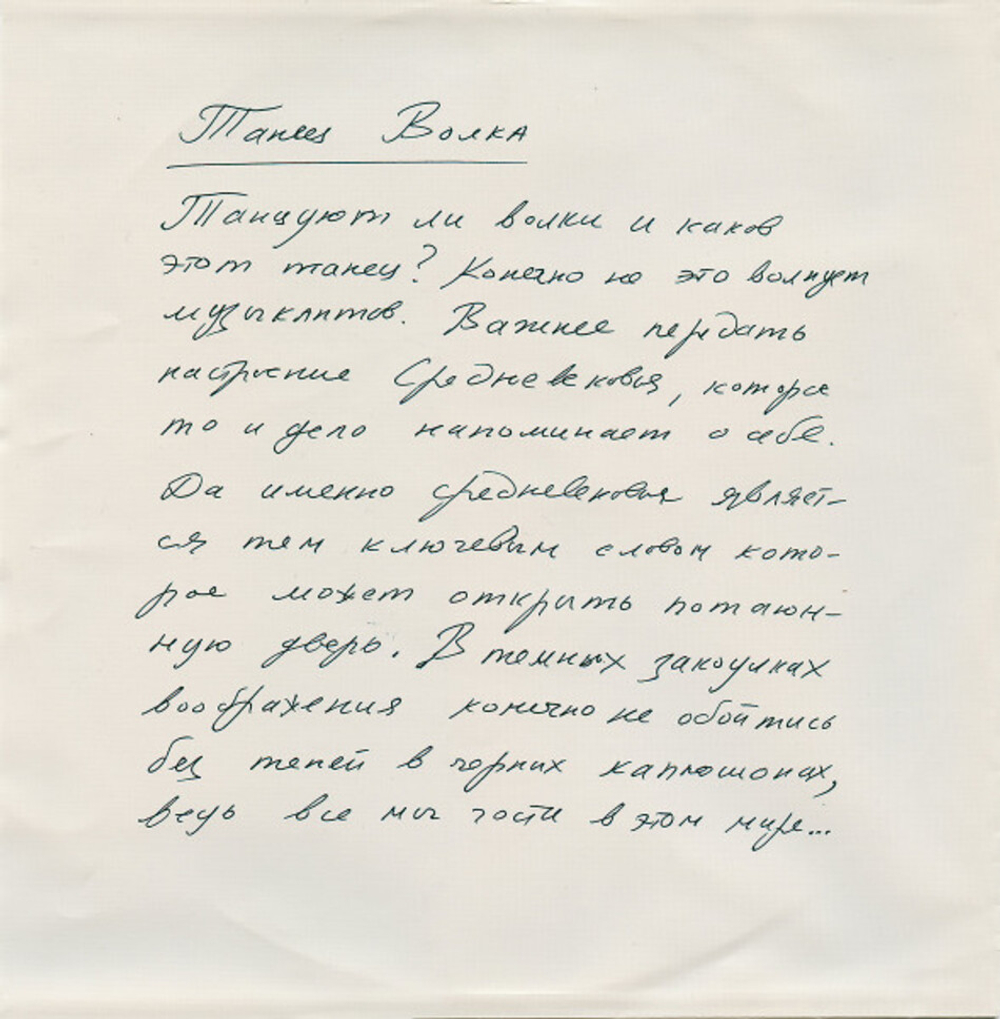 Танец Волка
Танцуют ли волки и каков
этот танец? Конечно не это волнует
музыкантов. Важнее передать
настроение Средневековья, которое
то и дело напоминает о себе.
Да именно средневековья являет-
ся тем ключевым словом кото-
рое может открыть потаюн-
ную дверь. В темных закоулках
воображения конечно не обойтись
без теней в черных капюшонах,
ведь все мы гости в этом мире...